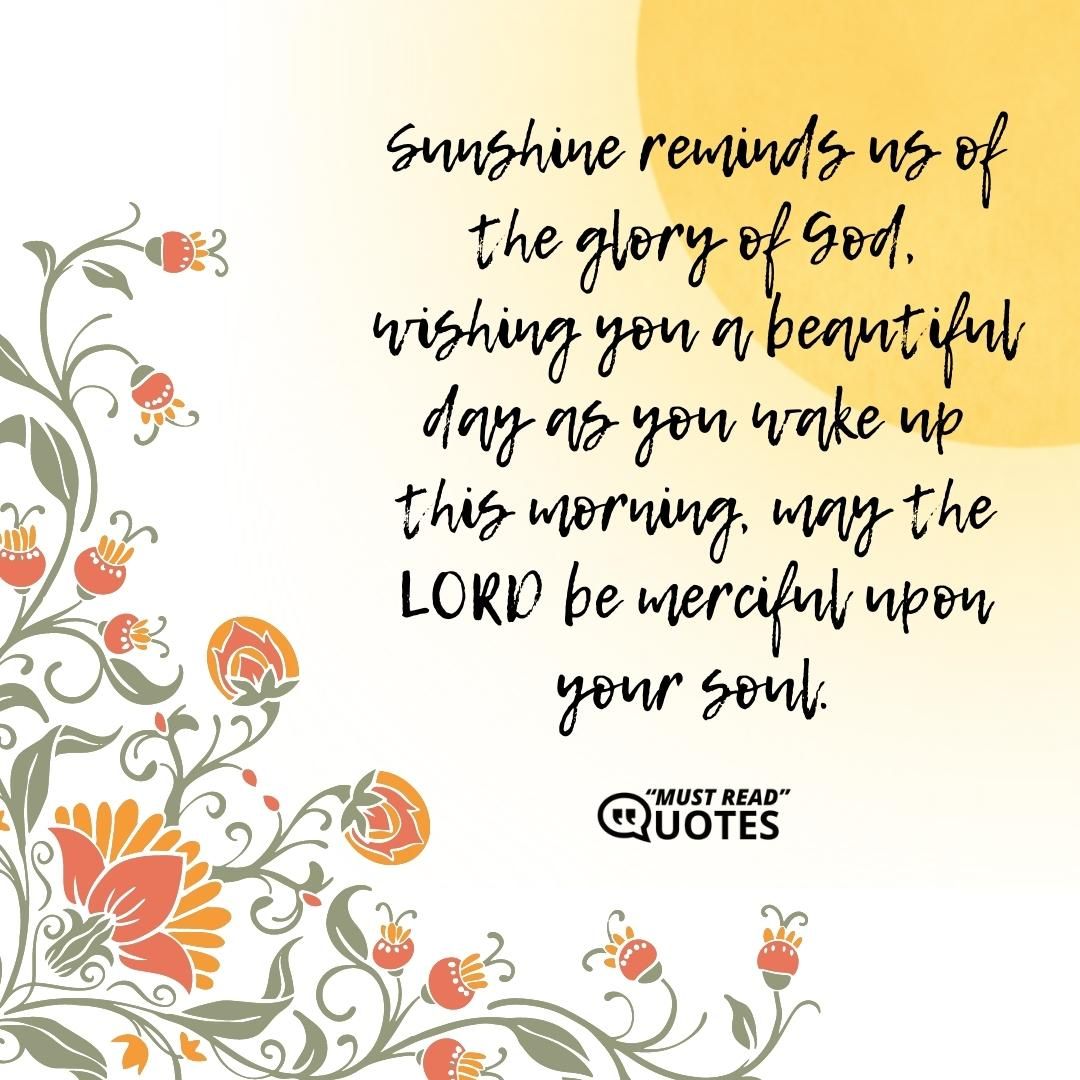 Sunshine reminds us of
the glory of God,
wishing you a beautiful
day as you wake up
this morning, may the
LORD be merciful upon
your soul.
"MUST READ"
QUOTES